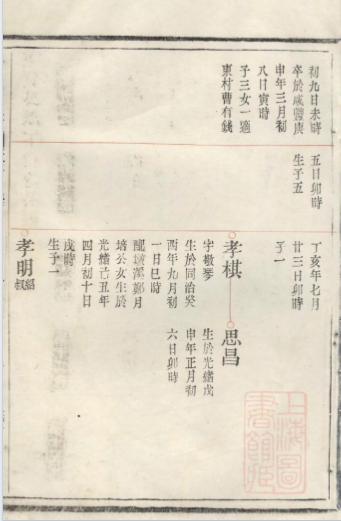 初九日未時
卒於咸豐庚
申年三月初
八日寅時
子三女一適
東村曹有錢
五日卯時
生子五
丁亥年七月
廿三日卯時
子一
孝棋
字敬琴
生於同治癸
酉年九月初
一日巳時
配 溪鄭月
培公女生於
光緒己丑年
四月初十日
戌時
生子一
思昌
生於光緒戊
申年正月初
六日卯時
孝明
紹叔
上海圖書館藏